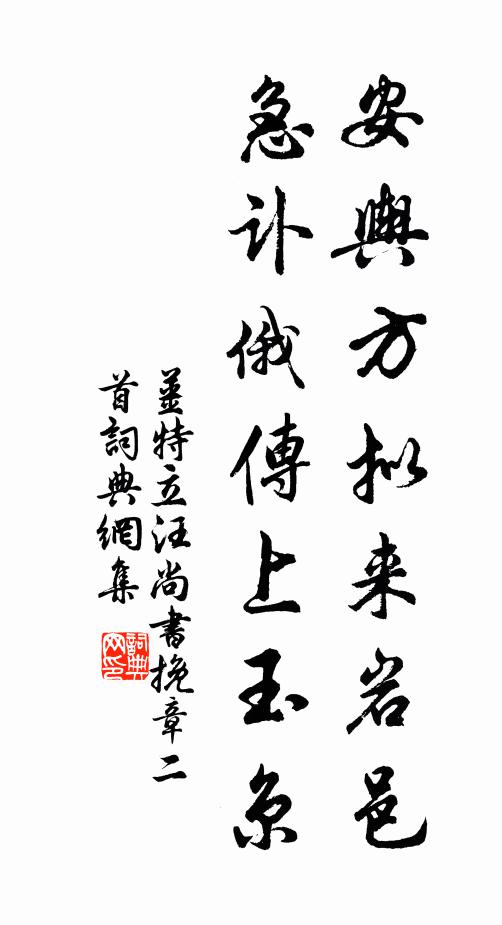 安輿方拟来岩邑
急訃俄傳上玉京
薑特立汪尚書挽章二
首詞典網集
詞典网印